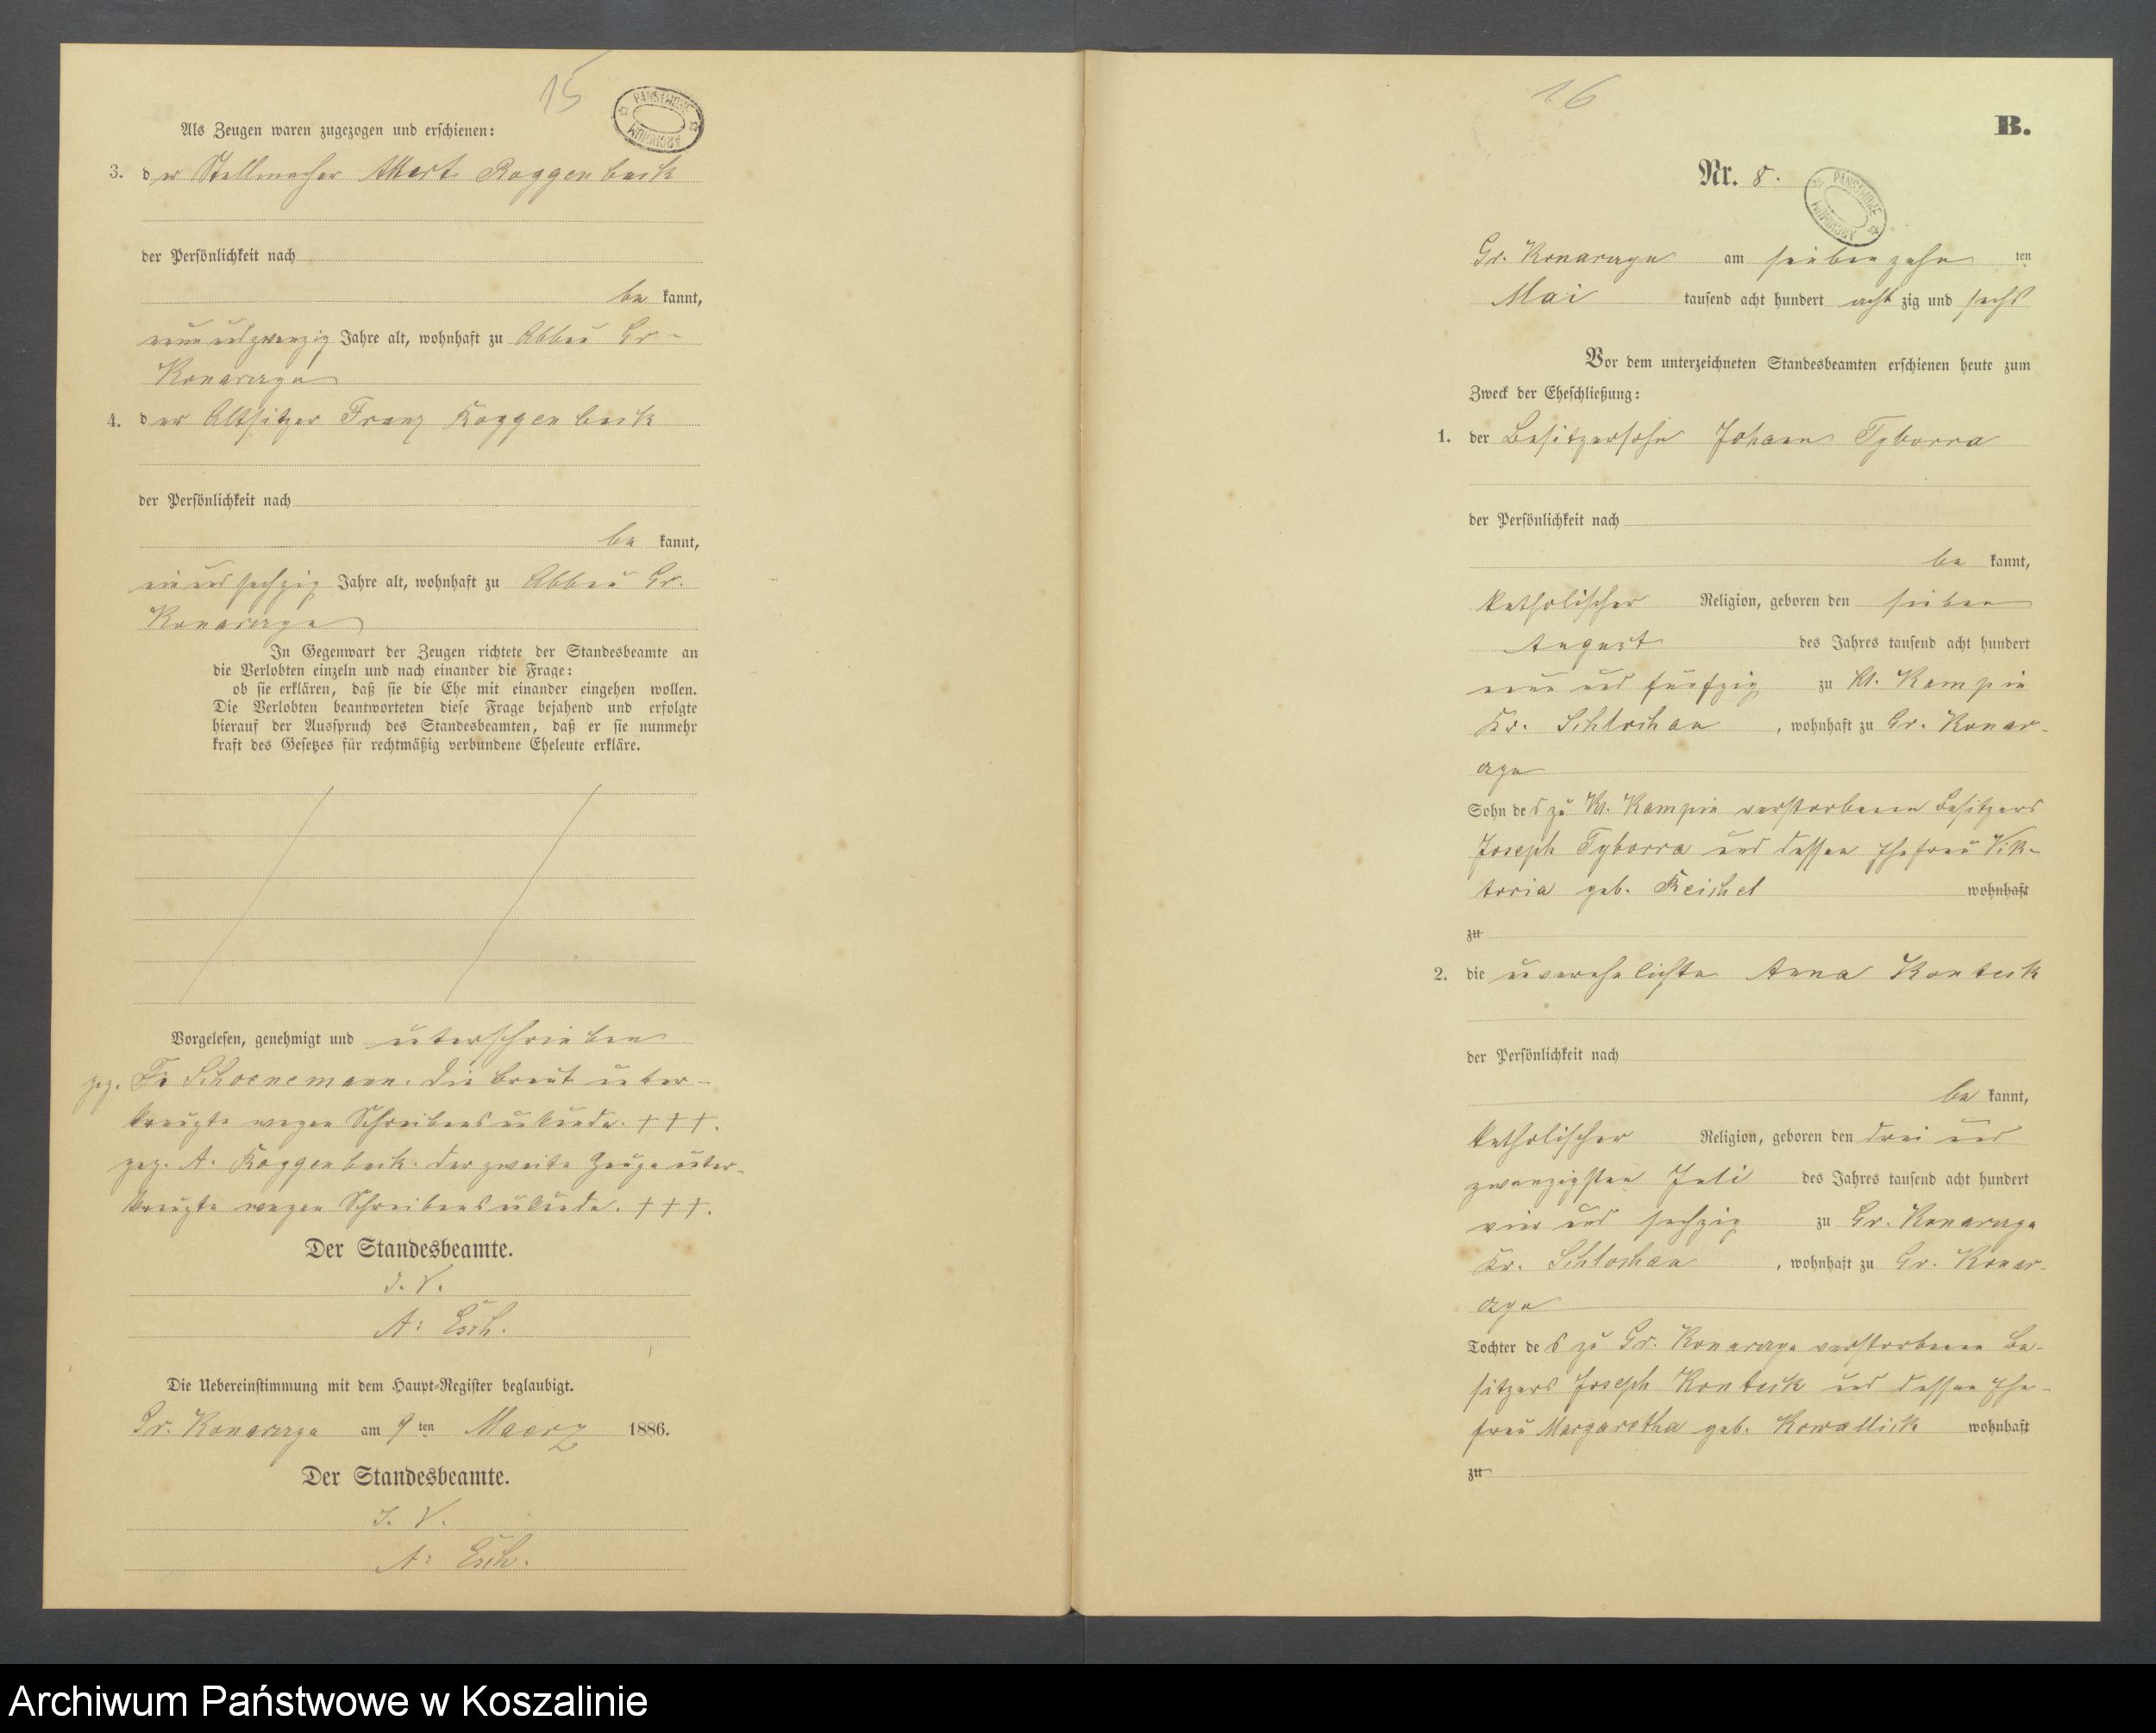 15
PANSTWOWE ARCHIWUM
Als Zeugen waren zugezogen und erschienen:
3. der Stellmacher Albert Roggenbuck
der Persönlichkeit nach
be kannt,
neun und zwanzig Jahre alt, wohnhaft zu Abbau Gr.
Konarczyn
4. der Altsitzer Franz Roggenbuck
der Persönlichkeit nach
be kannt,
ein und sechzig Jahre alt, wohnhaft zu Abbau Gr.
Konarczyn
In Gegenwart der Zeugen richtete der Standesbeamte an
die Verlobten einzeln und nach einander die Frage:
ob sie erklären, daß sie die Ehe mit einander eingehen wollen.
Die Verlobten beantworteten diese Frage bejahend und erfolgte
hierauf der Ausspruch des Standesbeamten, daß er sie nunmehr
kraft des Gesetzes für rechtmäßig verbundene Eheleute erkläre.
Vorgelesen, genehmigt und unterschrieben
gez. Fr Schoenemann. die Braut unter-
kreuzte wegen Schreibensunkunde. +++.
gez. A. Roggenbuck. der zweite Zeuge unter-
kreuzte wegen Schreibensunkunde. +++.
Der Standesbeamte.
I. V.
A: Esch.
Die Uebereinstimmung mit dem Haupt-Register beglaubigt.
Gr. Konarczyn am 9ten Maerz 1886.
Der Standesbeamte.
I. V.
A: Esch.
16
B.
Nr. 8.
PANSTWOWE ARCHIWUM
Gr. Konarczyn am siebenzehn ten
Mai tausend acht hundert acht zig und sechs
Vor dem unterzeichneten Standesbeamten erschienen heute zum
Zweck der Eheschließung:
1. der Besitzersohn Johann Tyborra
der Persönlichkeit nach
be kannt,
katholischer Religion, geboren den sieben
August des Jahres tausend acht hundert
neun und fünfzig zu Kl. Kampin
Kr. Schlochau, wohnhaft zu Gr. Konar-
czyn
Sohn des zu Kl. Kampin verstorbenen Besitzers
Joseph Tyborra und dessen Ehefrau Vik-
toria geb. Reichel wohnhaft
zu
2. die unverehelichte Anna Konteck
der Persönlichkeit nach
be kannt,
katholischer Religion, geboren den drei und
zwanzigsten Juli des Jahres tausend acht hundert
vier und sechzig zu Gr. Konarczyn
Kr. Schlochau, wohnhaft zu Gr. Konar-
czyn
Tochter des zu Gr. Konarczyn verstorbenen Be-
sitzers Joseph Konteck und dessen Ehe-
frau Margaretha geb. Kowallick wohnhaft
zu
Archiwum Państwowe w Koszalinie